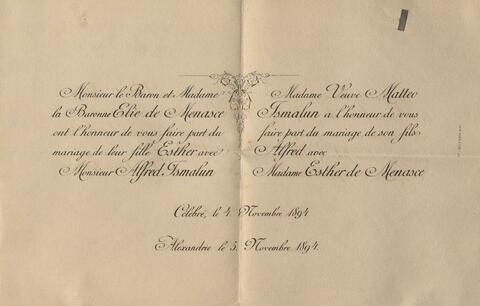 Monsieur le Baron et Madame
la Baronne Elie de Menasce
ont l'honneur de vous faire part du
mariage de leur fille Esther avec
Monsieur Alfred Ismalun
Madame Veuve Matteo
Ismalun a l'honneur de vous
faire part du mariage de son fils
Alfred avec
Madame Esther de Menasce
Célébré, le 4 Novembre 1894
Alexandrie le 5 Novembre 1894.